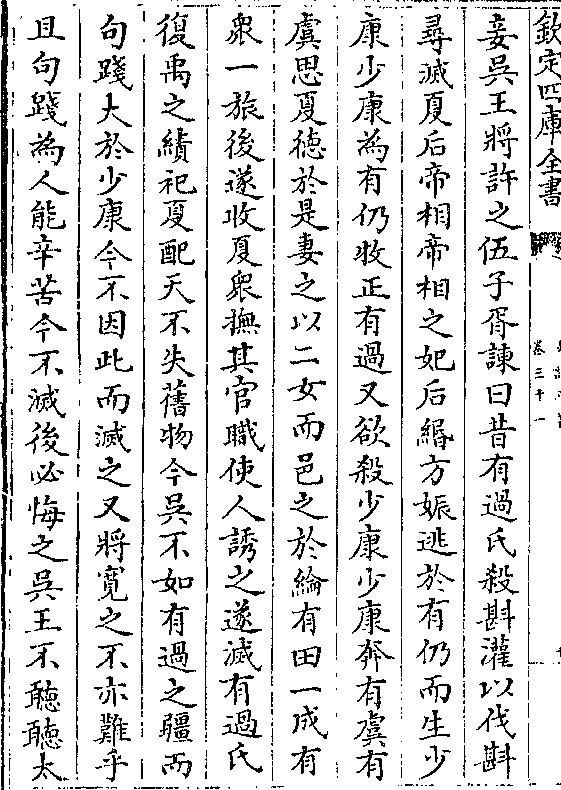 欽定四庫全書
卷三十一
妾吳王將許之伍子胥諫曰昔有過氏殺斟灌以伐斟
尋滅夏后帝相帝相之妃后緡方娠逃於有仍而生少
康少康為有仍牧正有過又欲殺少康少康奔有虞有
虞思夏徳於是妻之以二女而邑之於綸有田一成有
衆一旅後遂收夏衆撫其官職使人誘之遂滅有過氏
復禹之績祀夏配天不失舊物今吳不如有過之疆而
句踐大於少康今不因此而滅之又將寛之不亦難乎
且句踐為人能辛苦今不滅後必悔之吳王不聴聴太